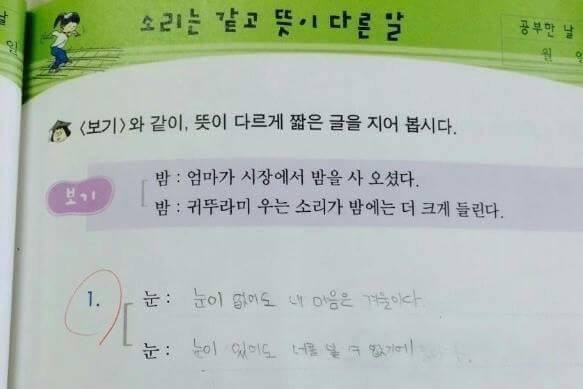 소리는 같고 뜻이 다른 말
공부한 날
월 일
날
일
<보기>와 같이, 뜻이 다르게 짧은 글을 지어 봅시다.
보기
밤 : 엄마가 시장에서 밤을 사 오셨다.
밤 : 귀뚜라미 우는 소리가 밤에는 더 크게 들린다.
1.
눈 : 눈이 없어도 내 마음은 겨울이다
눈 : 눈이 있어도 너를 볼 수 없기에